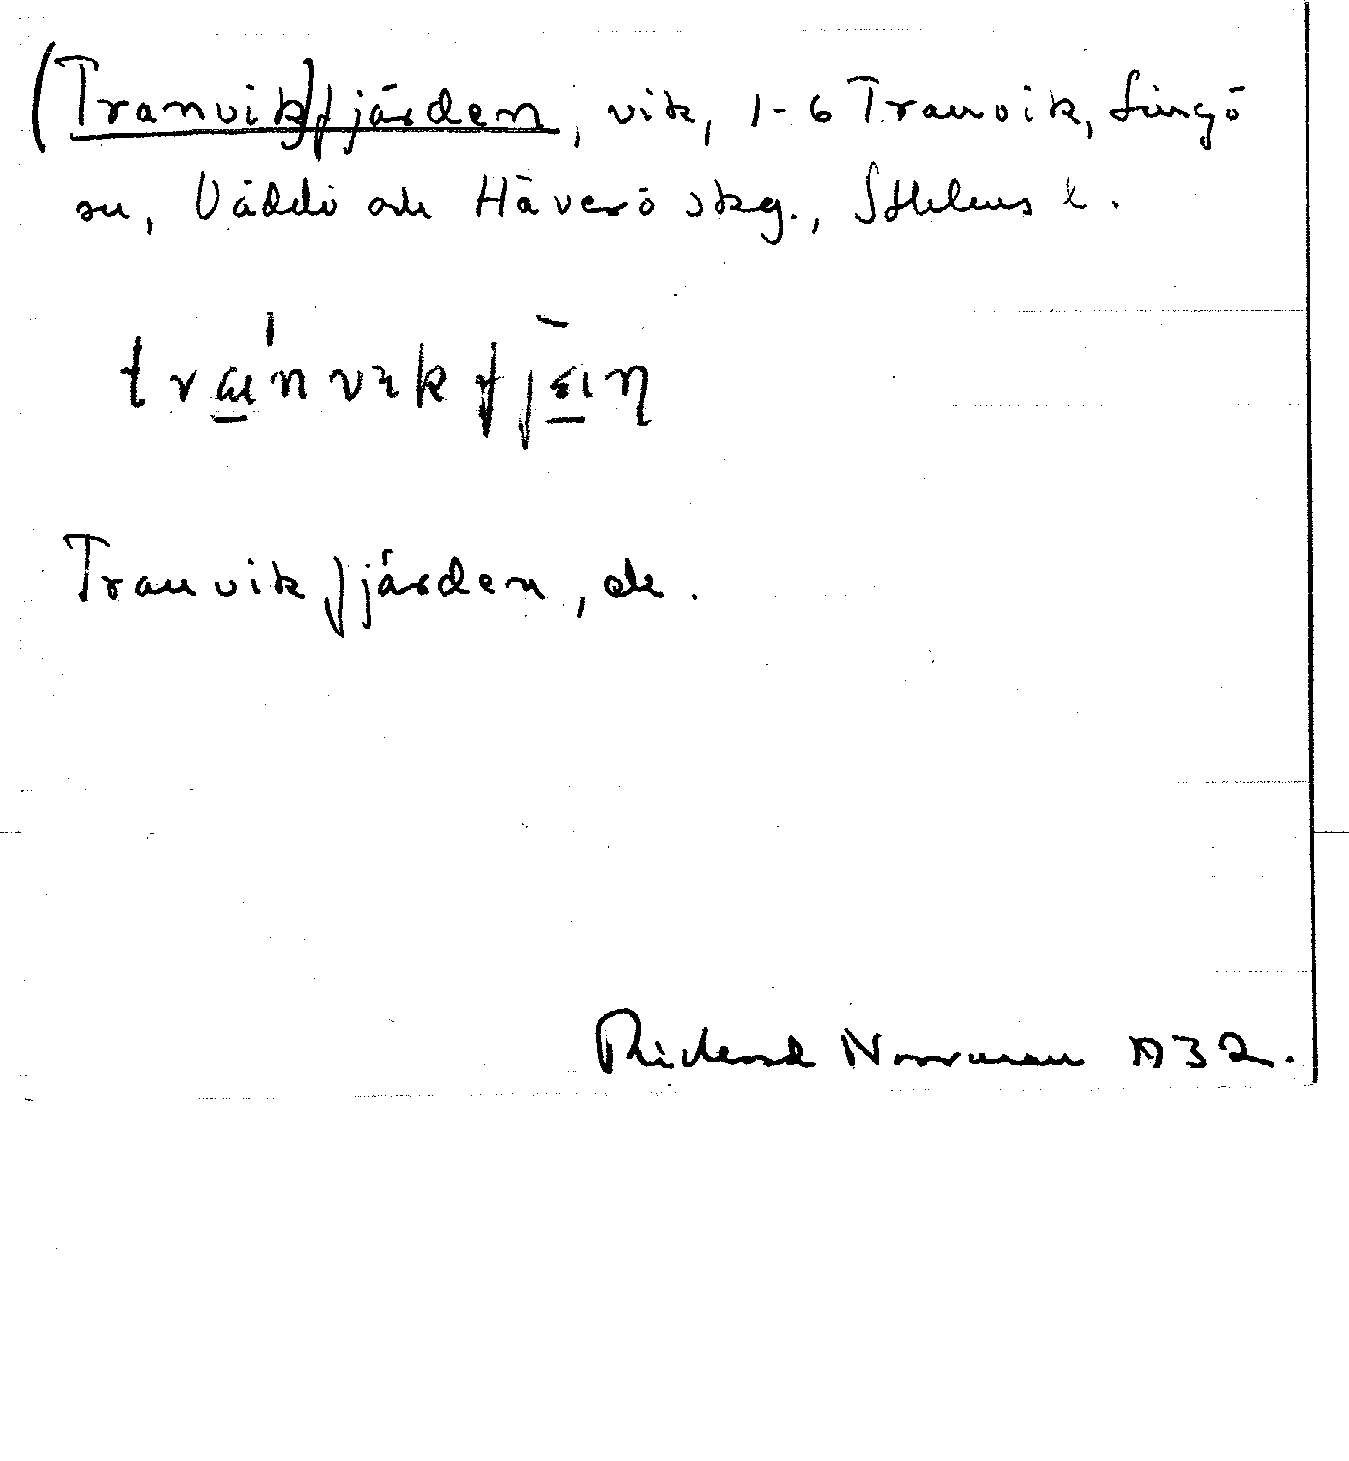 (Tranvik)fjärden, vik, 1-6 Tranvik, Singö
sn, Väddö och Häverö skg., Sthlms l.
Tranvikfjärden, ek.
Richard Norrman 1932.